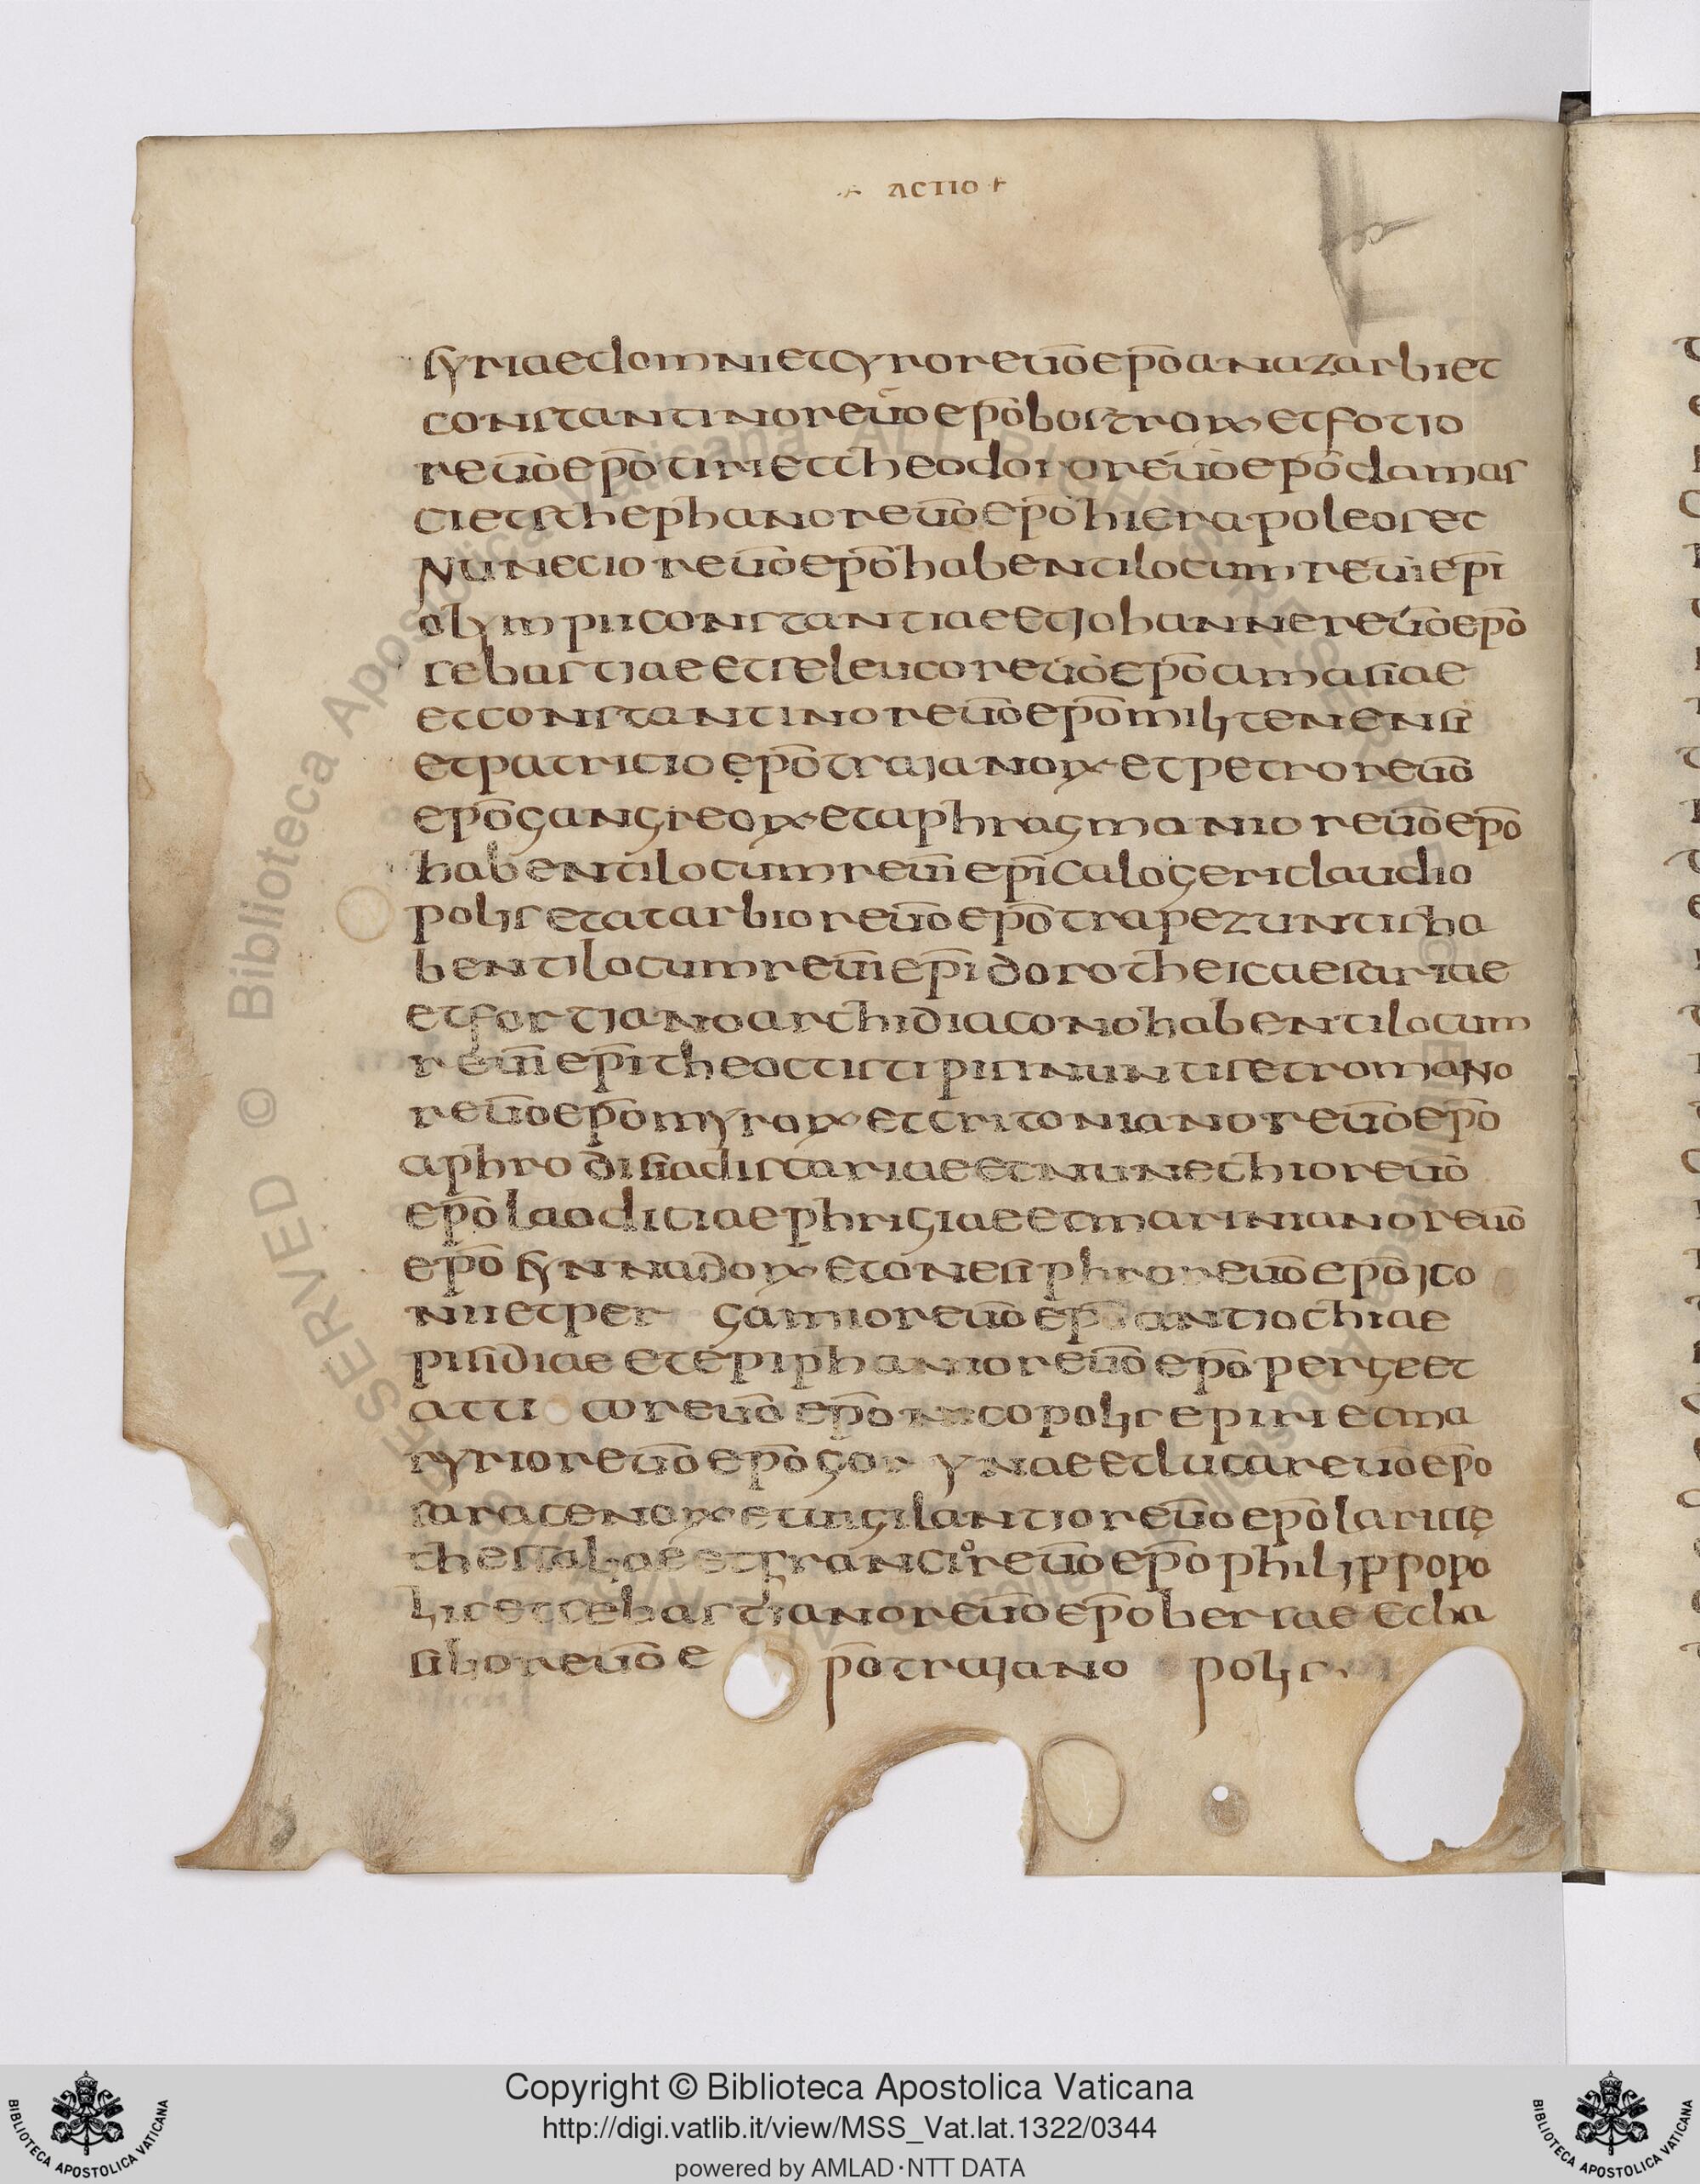 ACTIO
syriae domni et cyro reuō epō anazarbi et
constantino reuō epō bostroꝝ et fotio
reuō epō tiri et theodoro reuō epō damas
ci et sthephano reuō epō hierapoleos et
nunecio reuō epō habenti locum reūi epī
olympii constantiae et johanne reuō epō
sebastiae et seleuco reuō epō amasiae
et constantino reuō epō militenensi
et patricio epō trajanoꝝ et petro reuō
epō gangreoꝝ et aphragmanio reuō epō
habenti locum reūi epī calogeri claudio
polis et atarbio reuō epō trapezuntis ha
benti locum reūi epī dorothei caesariae
et fortiano archidiacono habenti locum
reūi epī theoctisti pisinuntis et romano
reuō epō myroꝝ et critoniano reuō epō
aphrodisiadis cariae et nunechio reuō
epō laodiciae phrigiae et mariniano reuō
epō synnadoꝝ et onesiphro reuō epō ico
nii et per gamio reuō ep antiochiae
pisidiae et epiphanio reuō epō perge et
atti co reuō epō nicopolis epiri et ma
ryrio reuō epō gor ynae et luca reuō epō
aracenoꝝ et uigilantio reuō epō larissę
thessaliae et francio reuō epō philippopo
lis et sebastiano reuō epō beriae et ba
silio reuō e pō trajano polis
Copyright © Biblioteca Apostolica Vaticana
http://digi.vatlib.it/view/MSS_Vat.lat.1322/0344
powered by AMLAD·NTT DATA
BIBLIOTECA APOSTOLICA VATICANA
BIBLIOTECA APOSTOLICA VATICANA